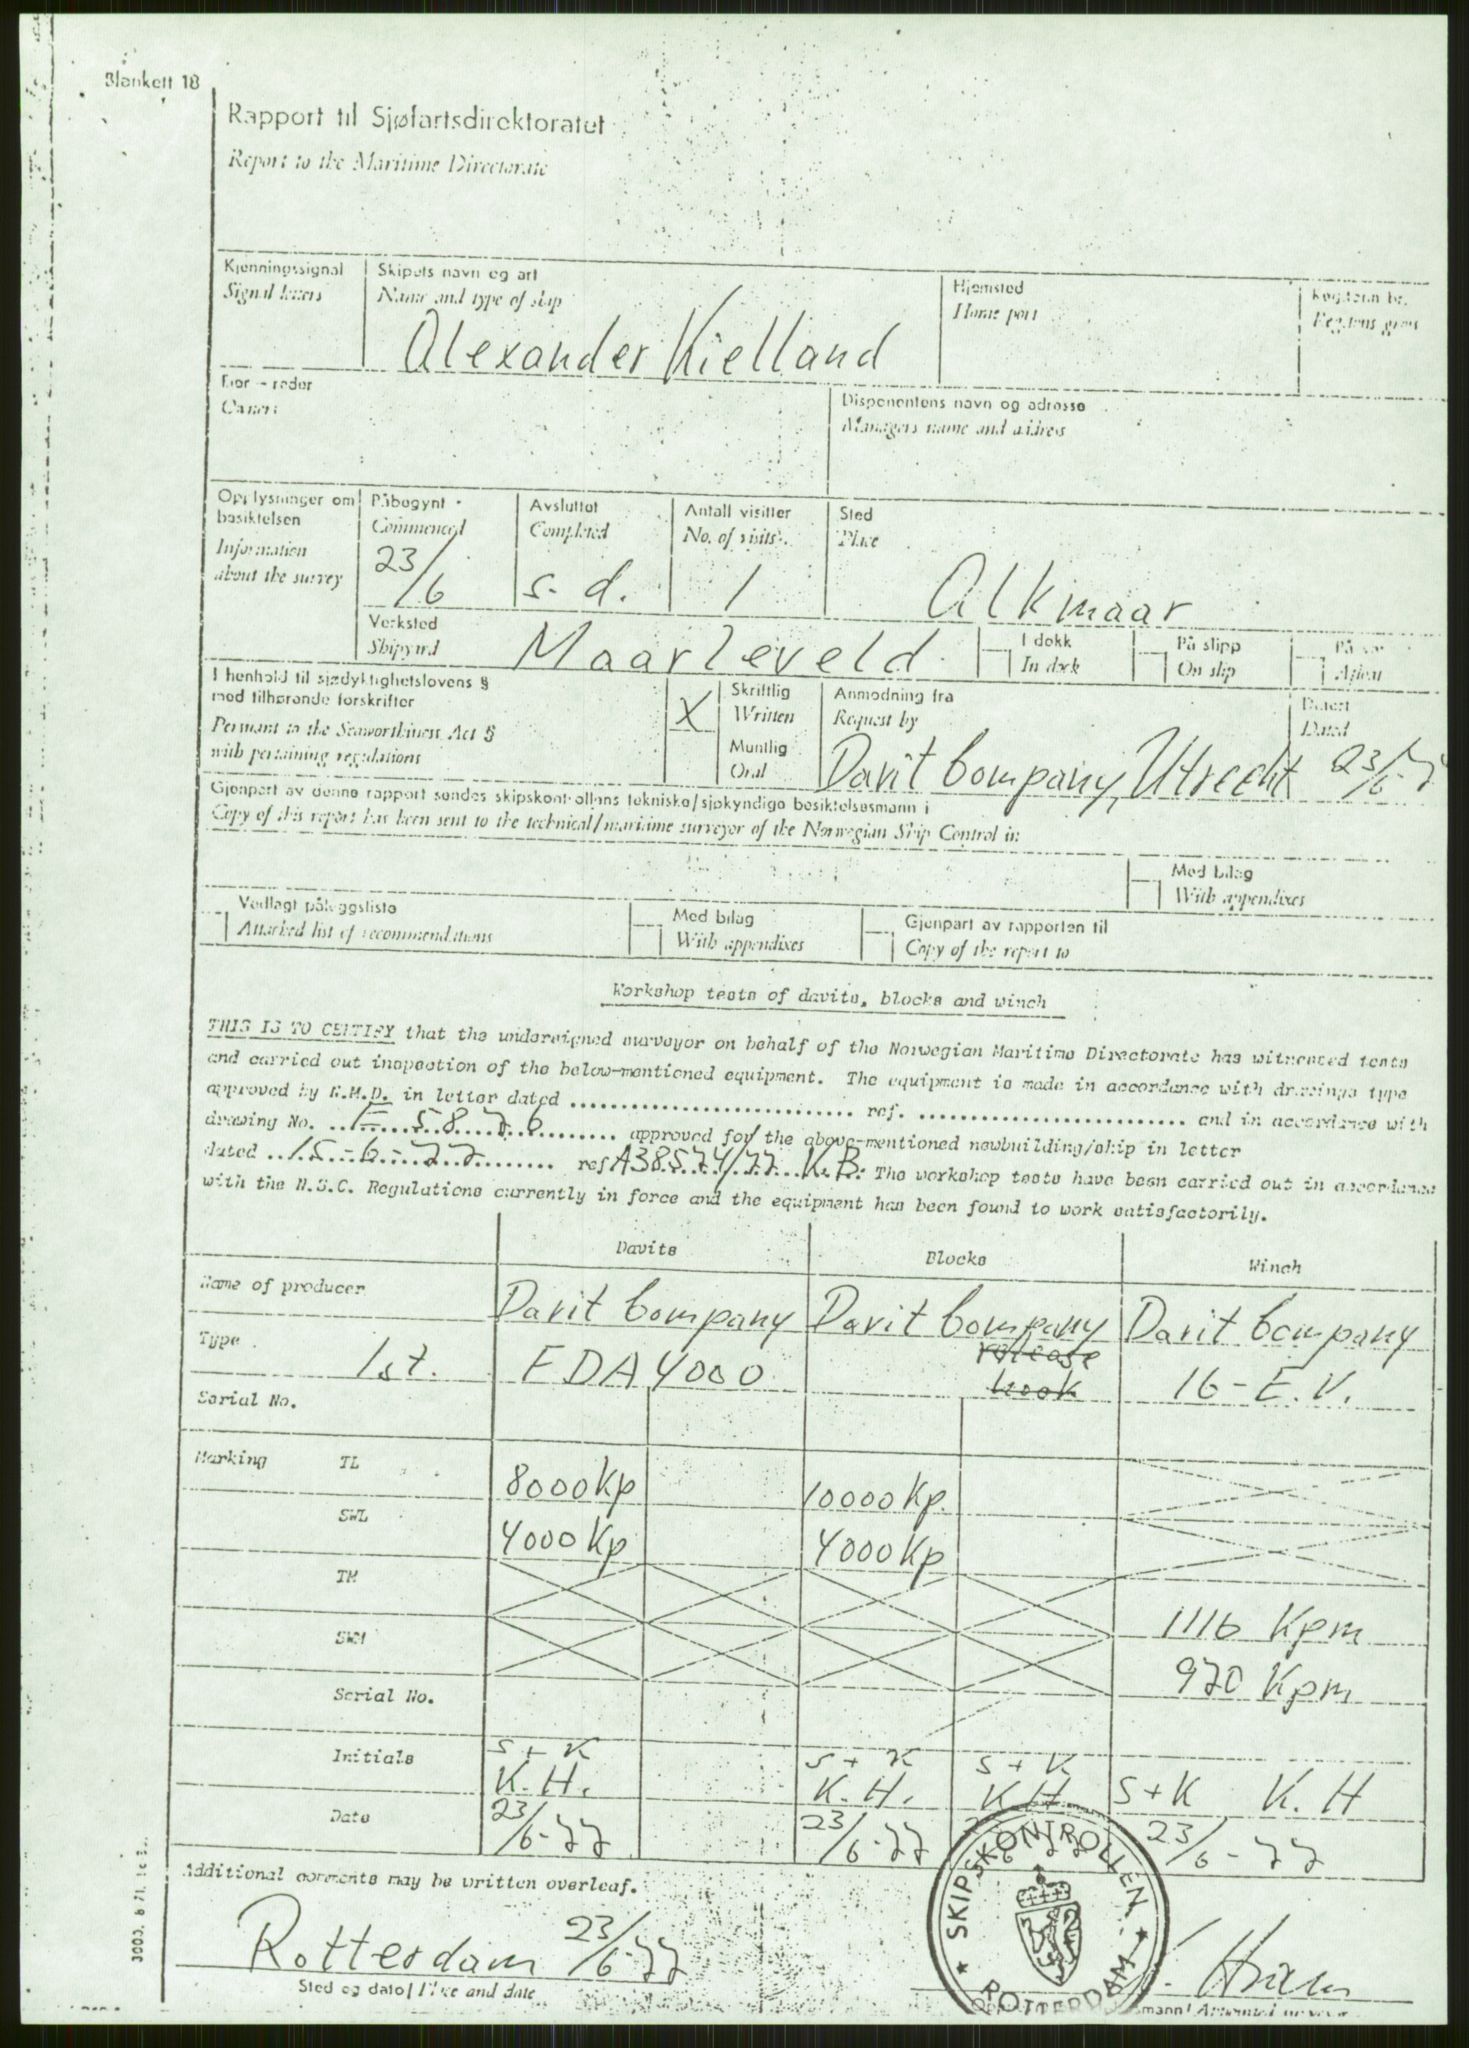 Blankett 18
Rapport til Sjøfartsdirektoratet
Report to the Maritime Directorate
Kjenningssignal
Signal letters
Skipets navn og art
Name and type of ship
Alexander Kielland
Hjemsted
Home port
Reg.tonn br.
Reg.tons gross
Eier - reder
Owners
Disponentens navn og adresse
Managers name and address
Opplysninger om
besiktelsen
Information
about the survey
Påbegynt
Commenced
23/6
Avsluttet
Completed
s. d.
Antall visitter
No. of visits
1
Sted
Place
Alkmaar
Verksted
Shipyard
Maarleveld
I dokk
In dock
På slipp
On slip
På
Afloat
I henhold til sjødyktighetslovens §
med tilhørende forskrifter
Persuant to the Seaworthiness Act §
with pertaining regulations
X
Skriftlig
Written
Muntlig
Oral
Anmodning fra
Request by
Davit Company, Utrecht
Datert
Dated
23/6-7
Gjenpart av denne rapport sendes skipskontrollens tekniske/sjøkyndige besiktelsesmann i
Copy of this report has been sent to the technical/maritime surveyor of the Norwegian Ship Control in
Med bilag
With appendixes
Vedlagt påleggsliste
Attached list of recommendations
Med bilag
With appendixes
Gjenpart av rapporten til
Copy of the report to
Workshop tests of davits, blocks and winch
THIS IS TO CERTIFY that the undersigned surveyor on behalf of the Norwegian Maritime Directorate has witnessed tests
and carried out inspection of the below-mentioned equipment. The equipment is made in accordance with drawings type
approved by N.M.D. in letter dated ............................ ref. ............................ and in accordance with
drawing No. E 5876 approved for the above-mentioned newbuilding/ship in letter
dated 15-6-77 ref A38574/77 K.B. The workshop tests have been carried out in accordance
with the N.S.C. Regulations currently in force and the equipment has been found to work satisfactorily.
Davits Blocks Winch
Name of producer Davit Company Davit Company Davit Company
Type 1st. EDA 4000 release hook 16-E.V.
Serial No.
Marking TL 8000 Kp 10000 Kp.
SWL 4000 Kp 4000 Kp
TM 1116 Kpm
SWM 970 Kpm
Serial No.
Initials S + K K.H. S + K K.H. S + K K H S+K K. H
Date 23/6-77 23/6-77 23/6-77
Additional comments may be written overleaf.
Rotterdam 23/6-77
Sted og dato/Place and date
SKIPSKONTROLLEN
ROTTERDAM